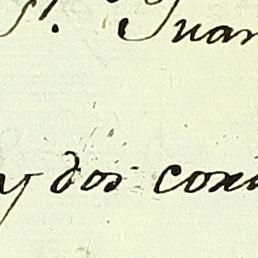 Sr. Juan
y dos con